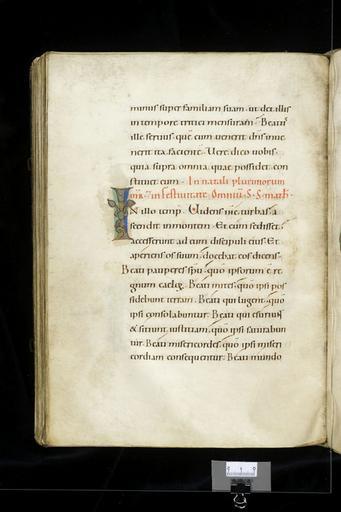 minus super familiam suam · ut det illis
in tempore tritici mensuram · Beatus
ille servus · que cum venerit dns inve
nerit ita facientē · Vere dico vobis ·
quia supra omnia quae possidet con
stituet eum · In natali plurimorum
in festivitate Omniū S · S ·
IN illo temp · Videns ihc turbas a
scendit in montem · Et cum sedisset ·
accesserunt ad eum discipuli eius · Et
aperiens os suum · docebat eos dicens ·
Beati pauperes spu · quō ipsorum ē re
gnum caelorū · Beati mites · quō ipsi pos
sidebunt terram · Beati qui lugent · quō
ipsi consolabuntur · Beati qui esuriunt
& sitiunt iustitiam · quō ipsi saturabun
tur · Beati misericordes · quō ipsi miseri
cordiam consequentur · Beati mundo